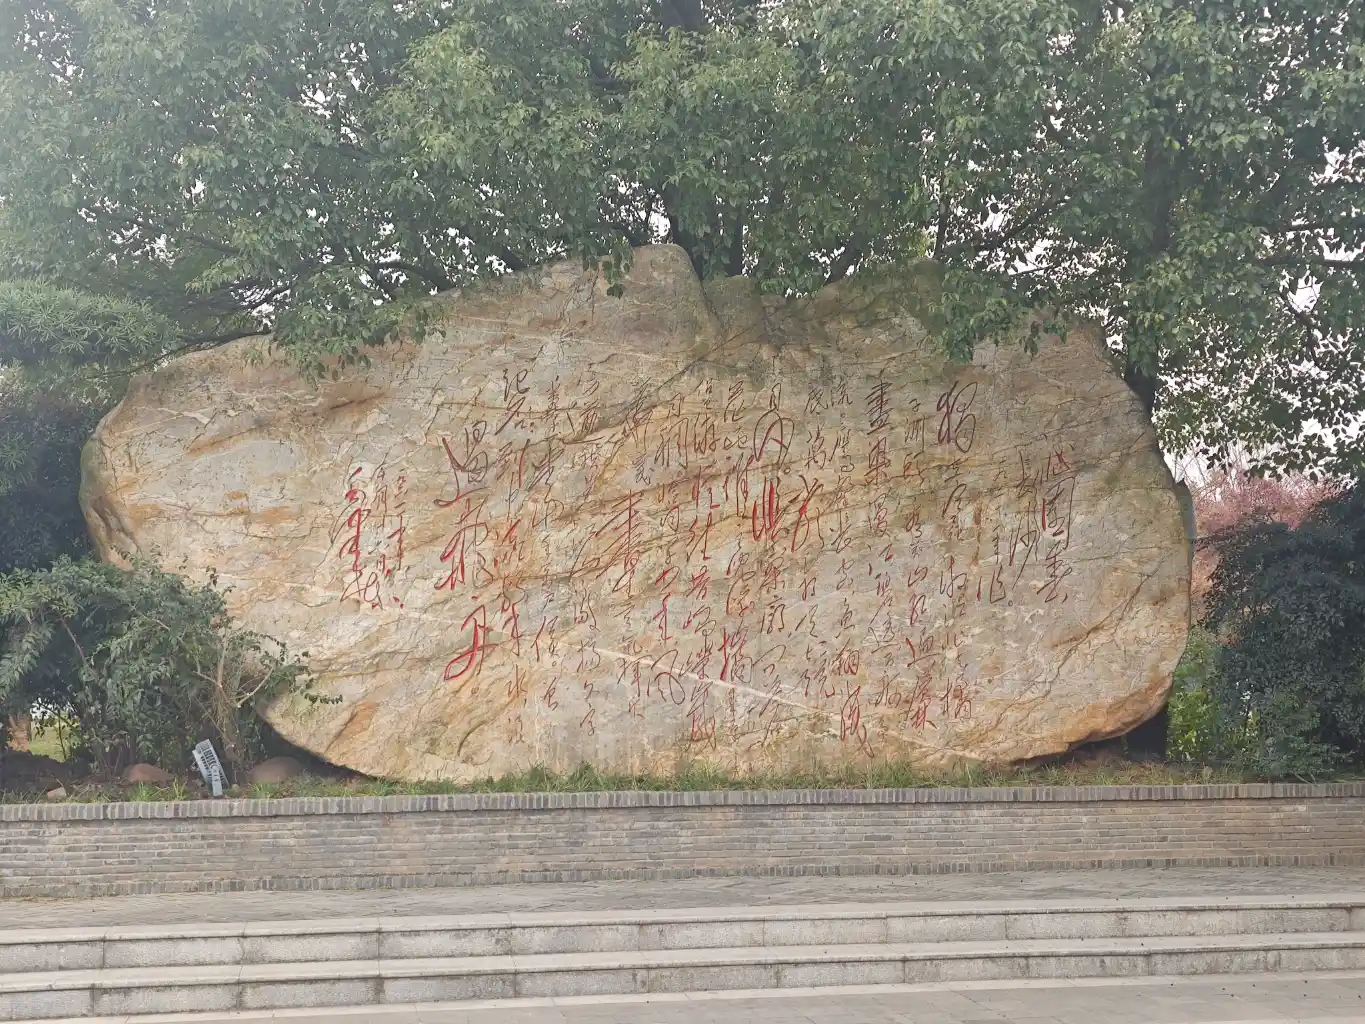 沁园春
长沙
独立寒秋湘江北去橘
子洲头看万山红遍层林
尽染漫江碧透百舸
争流。鹰击长空鱼翔浅
底万类霜天竞
自由。怅寥廓问苍
茫大地谁主沉浮携
来百侣曾游忆往昔峥嵘岁
月稠恰同学少年风
华正茂书生意气挥斥
方遒指点江山激扬文字
粪土当年万户侯。曾
记否到中流击水浪
遏飞舟
毛泽东